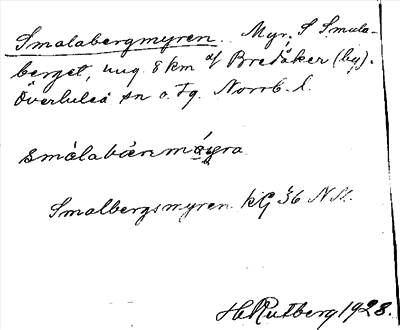 Smalabergmyren. Myr, S Smala-
berget, ung 8 km af Bredåker (by).
Överluleå sn o. Fg. Norrb. l.
smálabærmǫyra
Smalbergsmyren kG 36 NV.
H. Rutberg 1928.